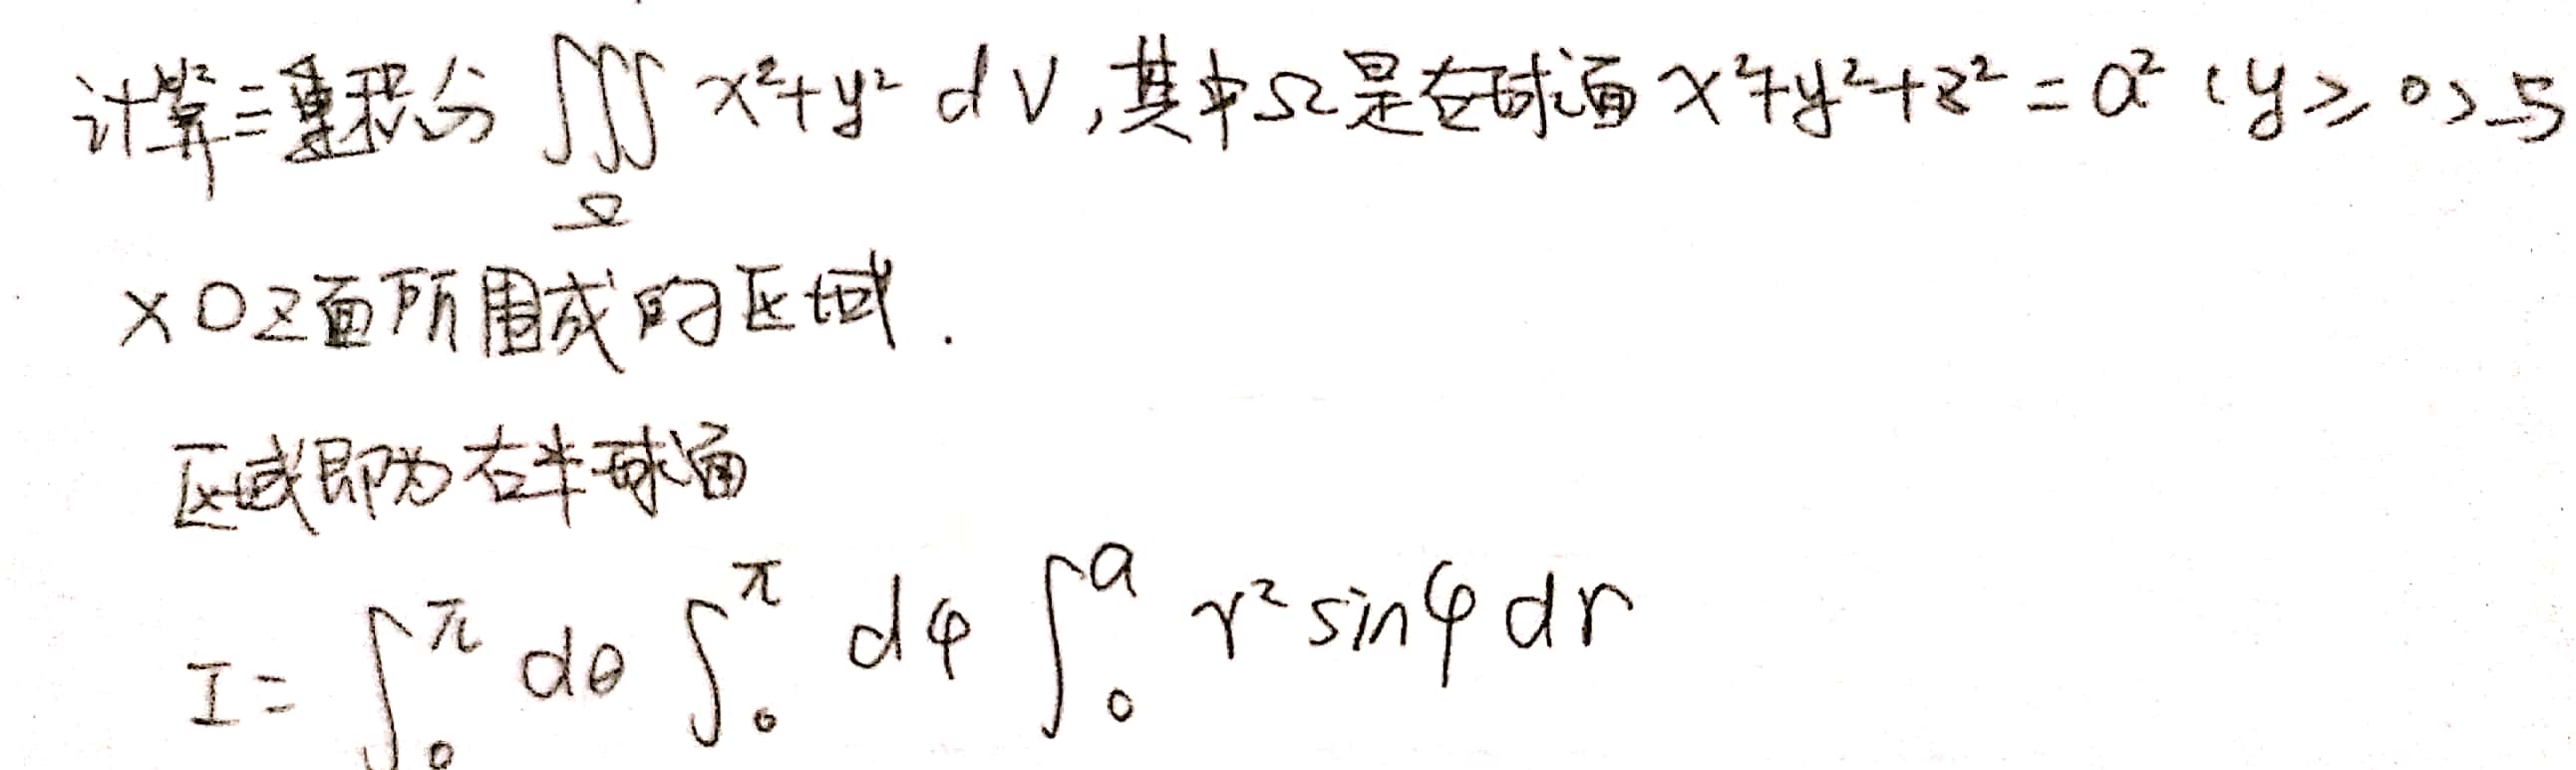 计算三重积分 ∭_Ω x²+y² dV,其中Ω是右球面 x²+y²+z² = a² (y ≥ 0)与
xOz面所围成的区域.
区域即为右半球面
I = ∫₀^π dθ ∫₀^π dφ ∫₀^a r² sinφ dr